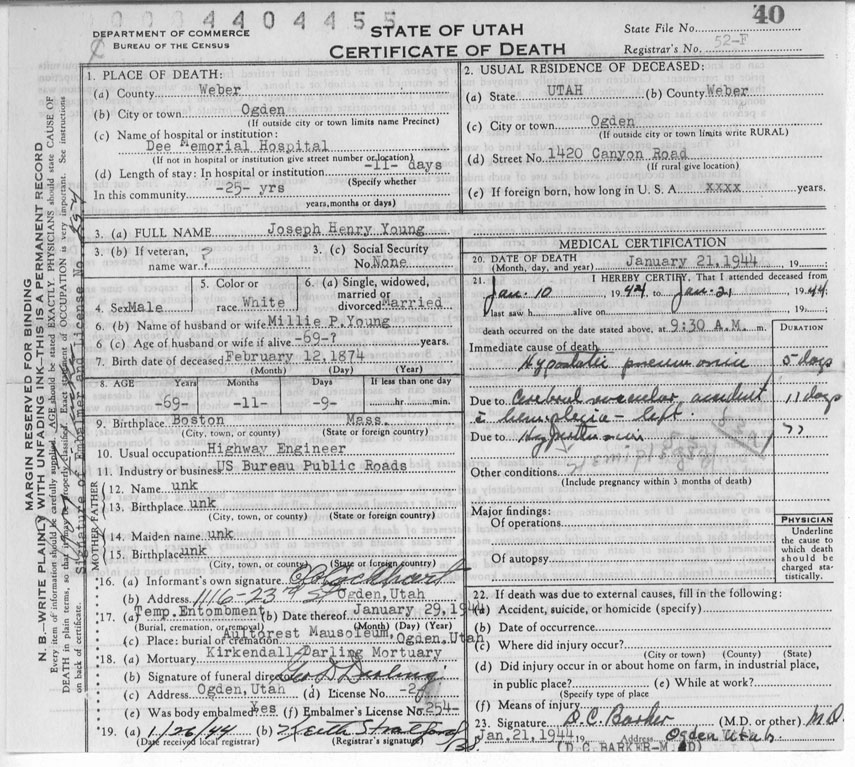 0004404455
40
DEPARTMENT OF COMMERCE
BUREAU OF THE CENSUS
STATE OF UTAH
CERTIFICATE OF DEATH
State File No.
Registrar's No. 52-F
MARGIN RESERVED FOR BINDING
N. B.—WRITE PLAINLY WITH UNFADING INK—THIS IS A PERMANENT RECORD
Every item of information should be carefully supplied. AGE should be stated EXACTLY. PHYSICIANS should state CAUSE OF
DEATH in plain terms, so that it may be properly classified. Exact statement of OCCUPATION is very important. See instructions
on back of certificate.
Signature of Embalmer and License No.
1. PLACE OF DEATH:
(a) County Weber
(b) City or town Ogden
(If outside city or town limits name Precinct)
(c) Name of hospital or institution:
Dee Memorial Hospital
(If not in hospital or institution give street number or location)
(d) Length of stay: In hospital or institution -11- days
(Specify whether
In this community -25- yrs
years, months or days)
2. USUAL RESIDENCE OF DECEASED:
(a) State UTAH (b) County Weber
(c) City or town Ogden
(If outside city or town limits write RURAL)
(d) Street No. 1420 Canyon Road
(If rural give location)
(e) If foreign born, how long in U. S. A. xxxx years.
3. (a) FULL NAME Joseph Henry Young
3. (b) If veteran, name war ?
3. (c) Social Security No. None
4. Sex Male
5. Color or race White
6. (a) Single, widowed, married or divorced Married
6. (b) Name of husband or wife Millie P. Young
6. (c) Age of husband or wife if alive -69-? years.
7. Birth date of deceased February 12, 1874
(Month) (Day) (Year)
8. AGE Years Months Days If less than one day
-69- -11- -9- hr. min.
9. Birthplace Boston Mass.
(City, town, or county) (State or foreign country)
10. Usual occupation Highway Engineer
11. Industry or business US Bureau Public Roads
FATHER
12. Name unk
13. Birthplace unk
(City, town, or county) (State or foreign country)
MOTHER
14. Maiden name unk
15. Birthplace unk
(City, town, or county) (State or foreign country)
16. (a) Informant's own signature
(b) Address 1116-23rd St Ogden, Utah
17. (a) Temp. Entombment (b) Date thereof January 29, 1944
(Burial, cremation, or removal) (Month) (Day) (Year)
(c) Place: burial or cremation Aultorest Mausoleum, Ogden, Utah
18. (a) Mortuary Kirkendall Darling Mortuary
(b) Signature of funeral director Geo D Darling
(c) Address Ogden, Utah (d) License No.
(e) Was body embalmed Yes (f) Embalmer's License No. 254-
19. (a) 1/26/44 (b) Keith Stratford
(Date received local registrar) (Registrar's signature)
MEDICAL CERTIFICATION
20. DATE OF DEATH
(Month, day, and year) January 21, 1944 19
21. I HEREBY CERTIFY, That I attended deceased from
Jan. 10 1944 to Jan. 21 1944
last saw h alive on 19
death occurred on the date stated above, at 9:30 A.M. m.
DURATION
Immediate cause of death
Hypostatic pneumonia 5 days
Due to Cerebral vascular accident 11 days
c hemiplegia - left.
Due to Hypertension ??
Hemiplegia
Other conditions
(Include pregnancy within 3 months of death)
Major findings:
Of operations
Of autopsy
PHYSICIAN
Underline
the cause to
which death
should be
charged sta-
tistically.
22. If death was due to external causes, fill in the following:
(a) Accident, suicide, or homicide (specify)
(b) Date of occurrence
(c) Where did injury occur?
(City or town) (County) (State)
(d) Did injury occur in or about home on farm, in industrial place,
in public place? (e) While at work?
(Specify type of place)
(f) Means of injury
23. Signature D. C. Barker (M.D. or other) M.D.
Jan. 21, 1944 19 Address Ogden Utah
(D. C. BARKER-M. D)